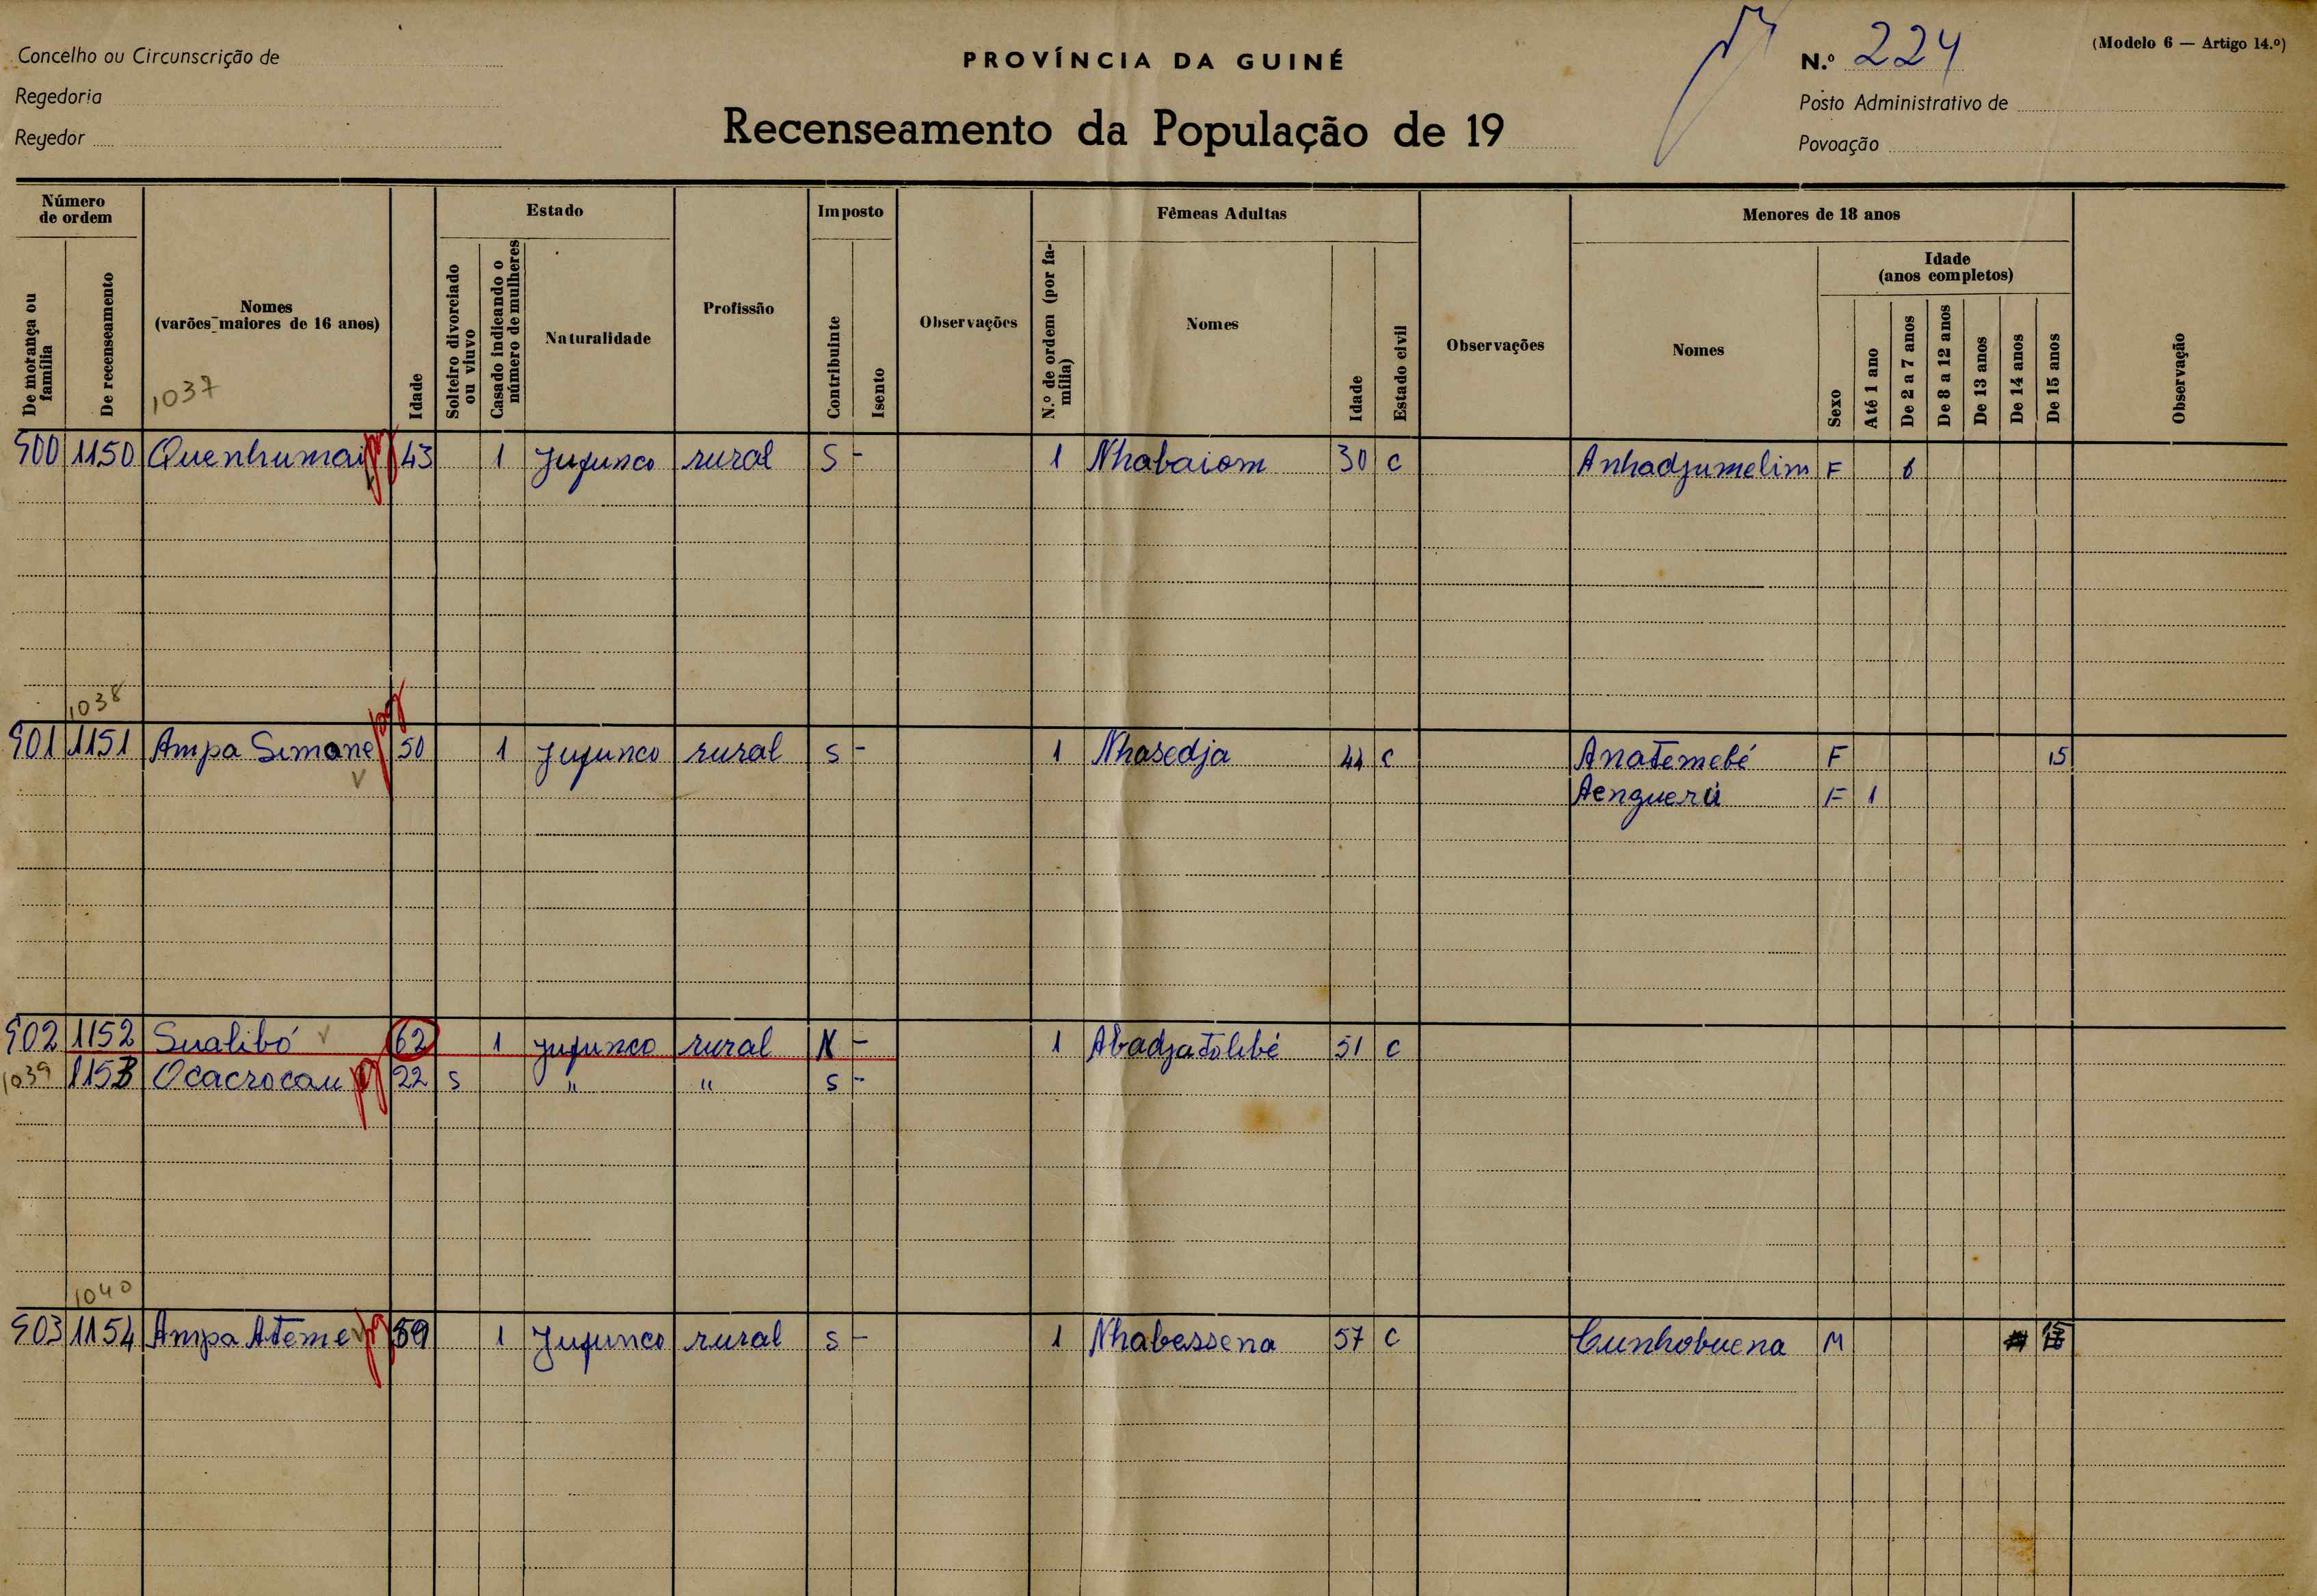 Concelho ou Circunscrição de
Regedoria
Regedor
PROVÍNCIA DA GUINÉ
Recenseamento da População de 19
N.º 224
(Modelo 6 — Artigo 14.º)
Posto Administrativo de
Povoação
Número de ordem
De morança ou família
De recenseamento
Nomes
(varões maiores de 16 anos)
1037
Idade
Estado
Solteiro divorciado ou viuvo
Casado indicando o número de mulheres
Naturalidade
Profissão
Imposto
Contribuinte
Isento
Observações
Fêmeas Adultas
N.º de ordem (por família)
Nomes
Idade
Estado civil
Observações
Menores de 18 anos
Nomes
Sexo
Idade
(anos completos)
Até 1 ano
De 2 a 7 anos
De 8 a 12 anos
De 13 anos
De 14 anos
De 15 anos
Observação
900 1150 Quenhumai pg 43 1 Jufunco rural S - 1 Nhabaiom 30 C Anhadjumelim F 6
1038
901 1151 Ampa Simone pg 50 1 Jufunco rural S - 1 Nhasedja 44 C Anatemebé F 15
Aenguerú F 1
902 1152 Sualibó 62 1 Jufunco rural N - 1 Abadjatolibé 51 C
1039 1153 Ocacrocau pg 22 S " " S -
1040
903 1154 Ampa Ateme pg 59 1 Jufunco rural S - 1 Nhabessena 57 C Cunhobuena M